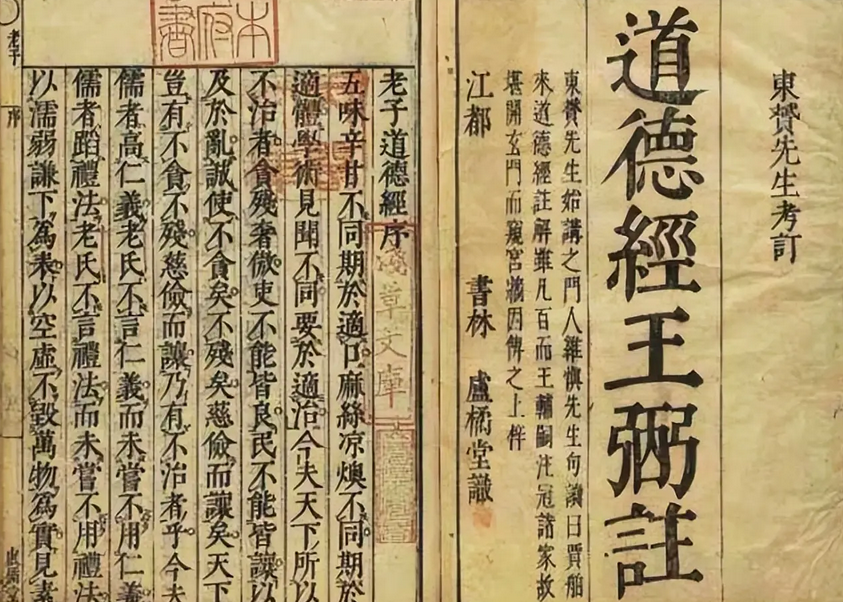 東贇先生考訂
道德經王弼註
東贇先生始講之門人維慎先生句讀曰賈舶
來道德經註解雖凡百而王輔嗣注冠諸家故
堪開玄門而窺宮牆因傳之上梓
江都 書林 盧橘堂識
本府書
淺草文庫
老子道德經序
五味辛甘不同期於適口麻絲凉燠不同期於
適體學術見聞不同要於適治今夫天下所以
不治者貪殘奢傲吏不能皆良民不能皆讓以
及於亂誠使不貪矣不殘矣慈儉而讓矣天下
豈有不貪不殘慈儉而讓乃有不治者乎今夫
儒者高仁義老氏不言仁義而未嘗不用仁義
儒者蹈禮法老氏不言禮法而未嘗不用禮法
以濡弱謙下爲表以空虛不毀萬物爲實見素
老子 序